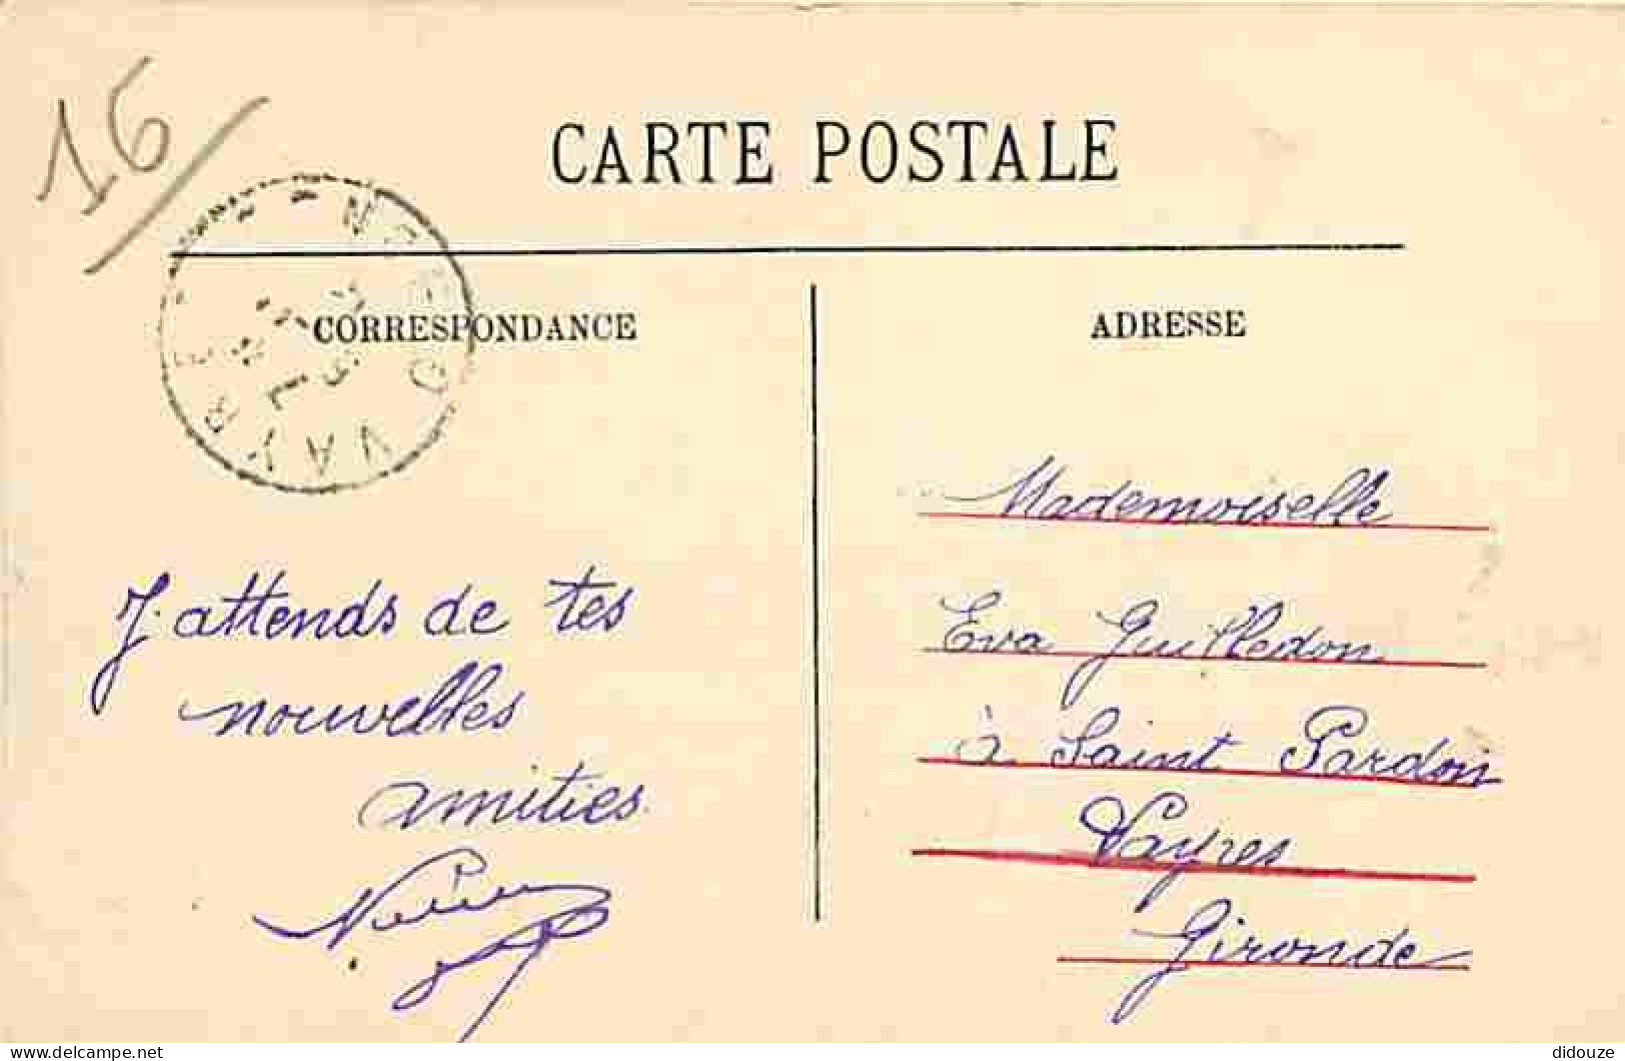 16
CARTE POSTALE
CORRESPONDANCE
ADRESSE
J'attends de tes
nouvelles
amitiés
Mademoiselle
Eva Guilledon
à Saint Pardon
Vayres
Gironde
delcampe.net
didouze